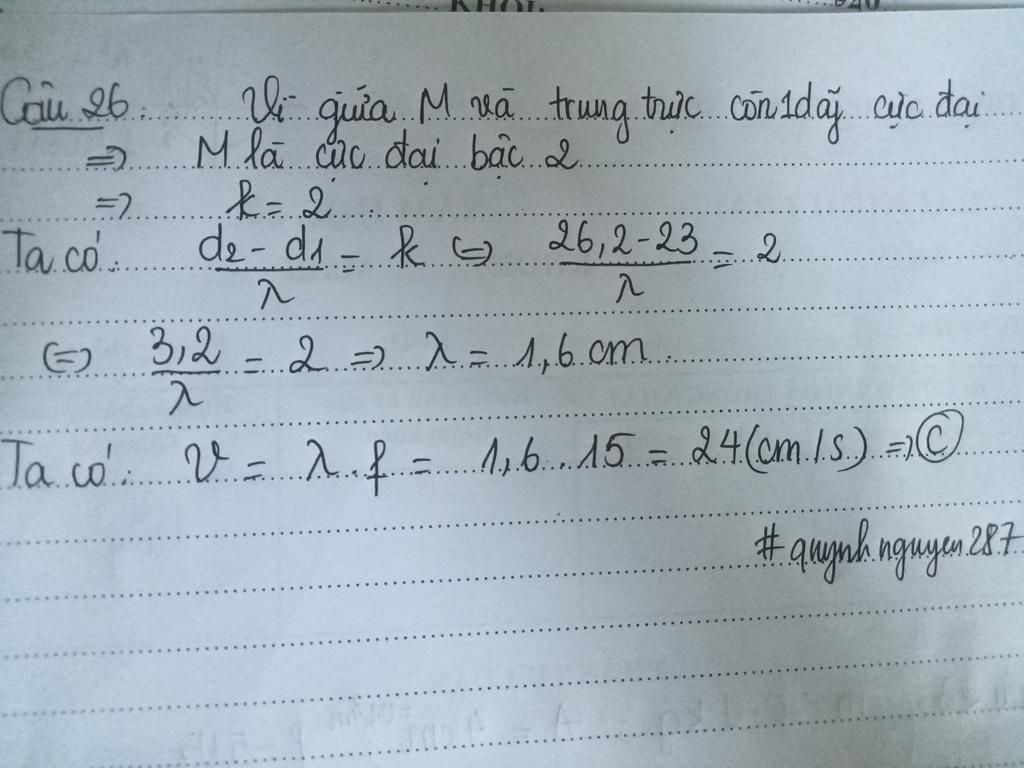 Câu 26: Vì giữa M và trung trực còn 1 dãy cực đại
=> M là cực đại bậc 2
=> k = 2
Ta có: (d2 - d1)/λ = k <=> (26,2 - 23)/λ = 2
<=> 3,2/λ = 2 => λ = 1,6 cm
Ta có: v = λ.f = 1,6.15 = 24 (cm/s) => C
#quynhnguyen287